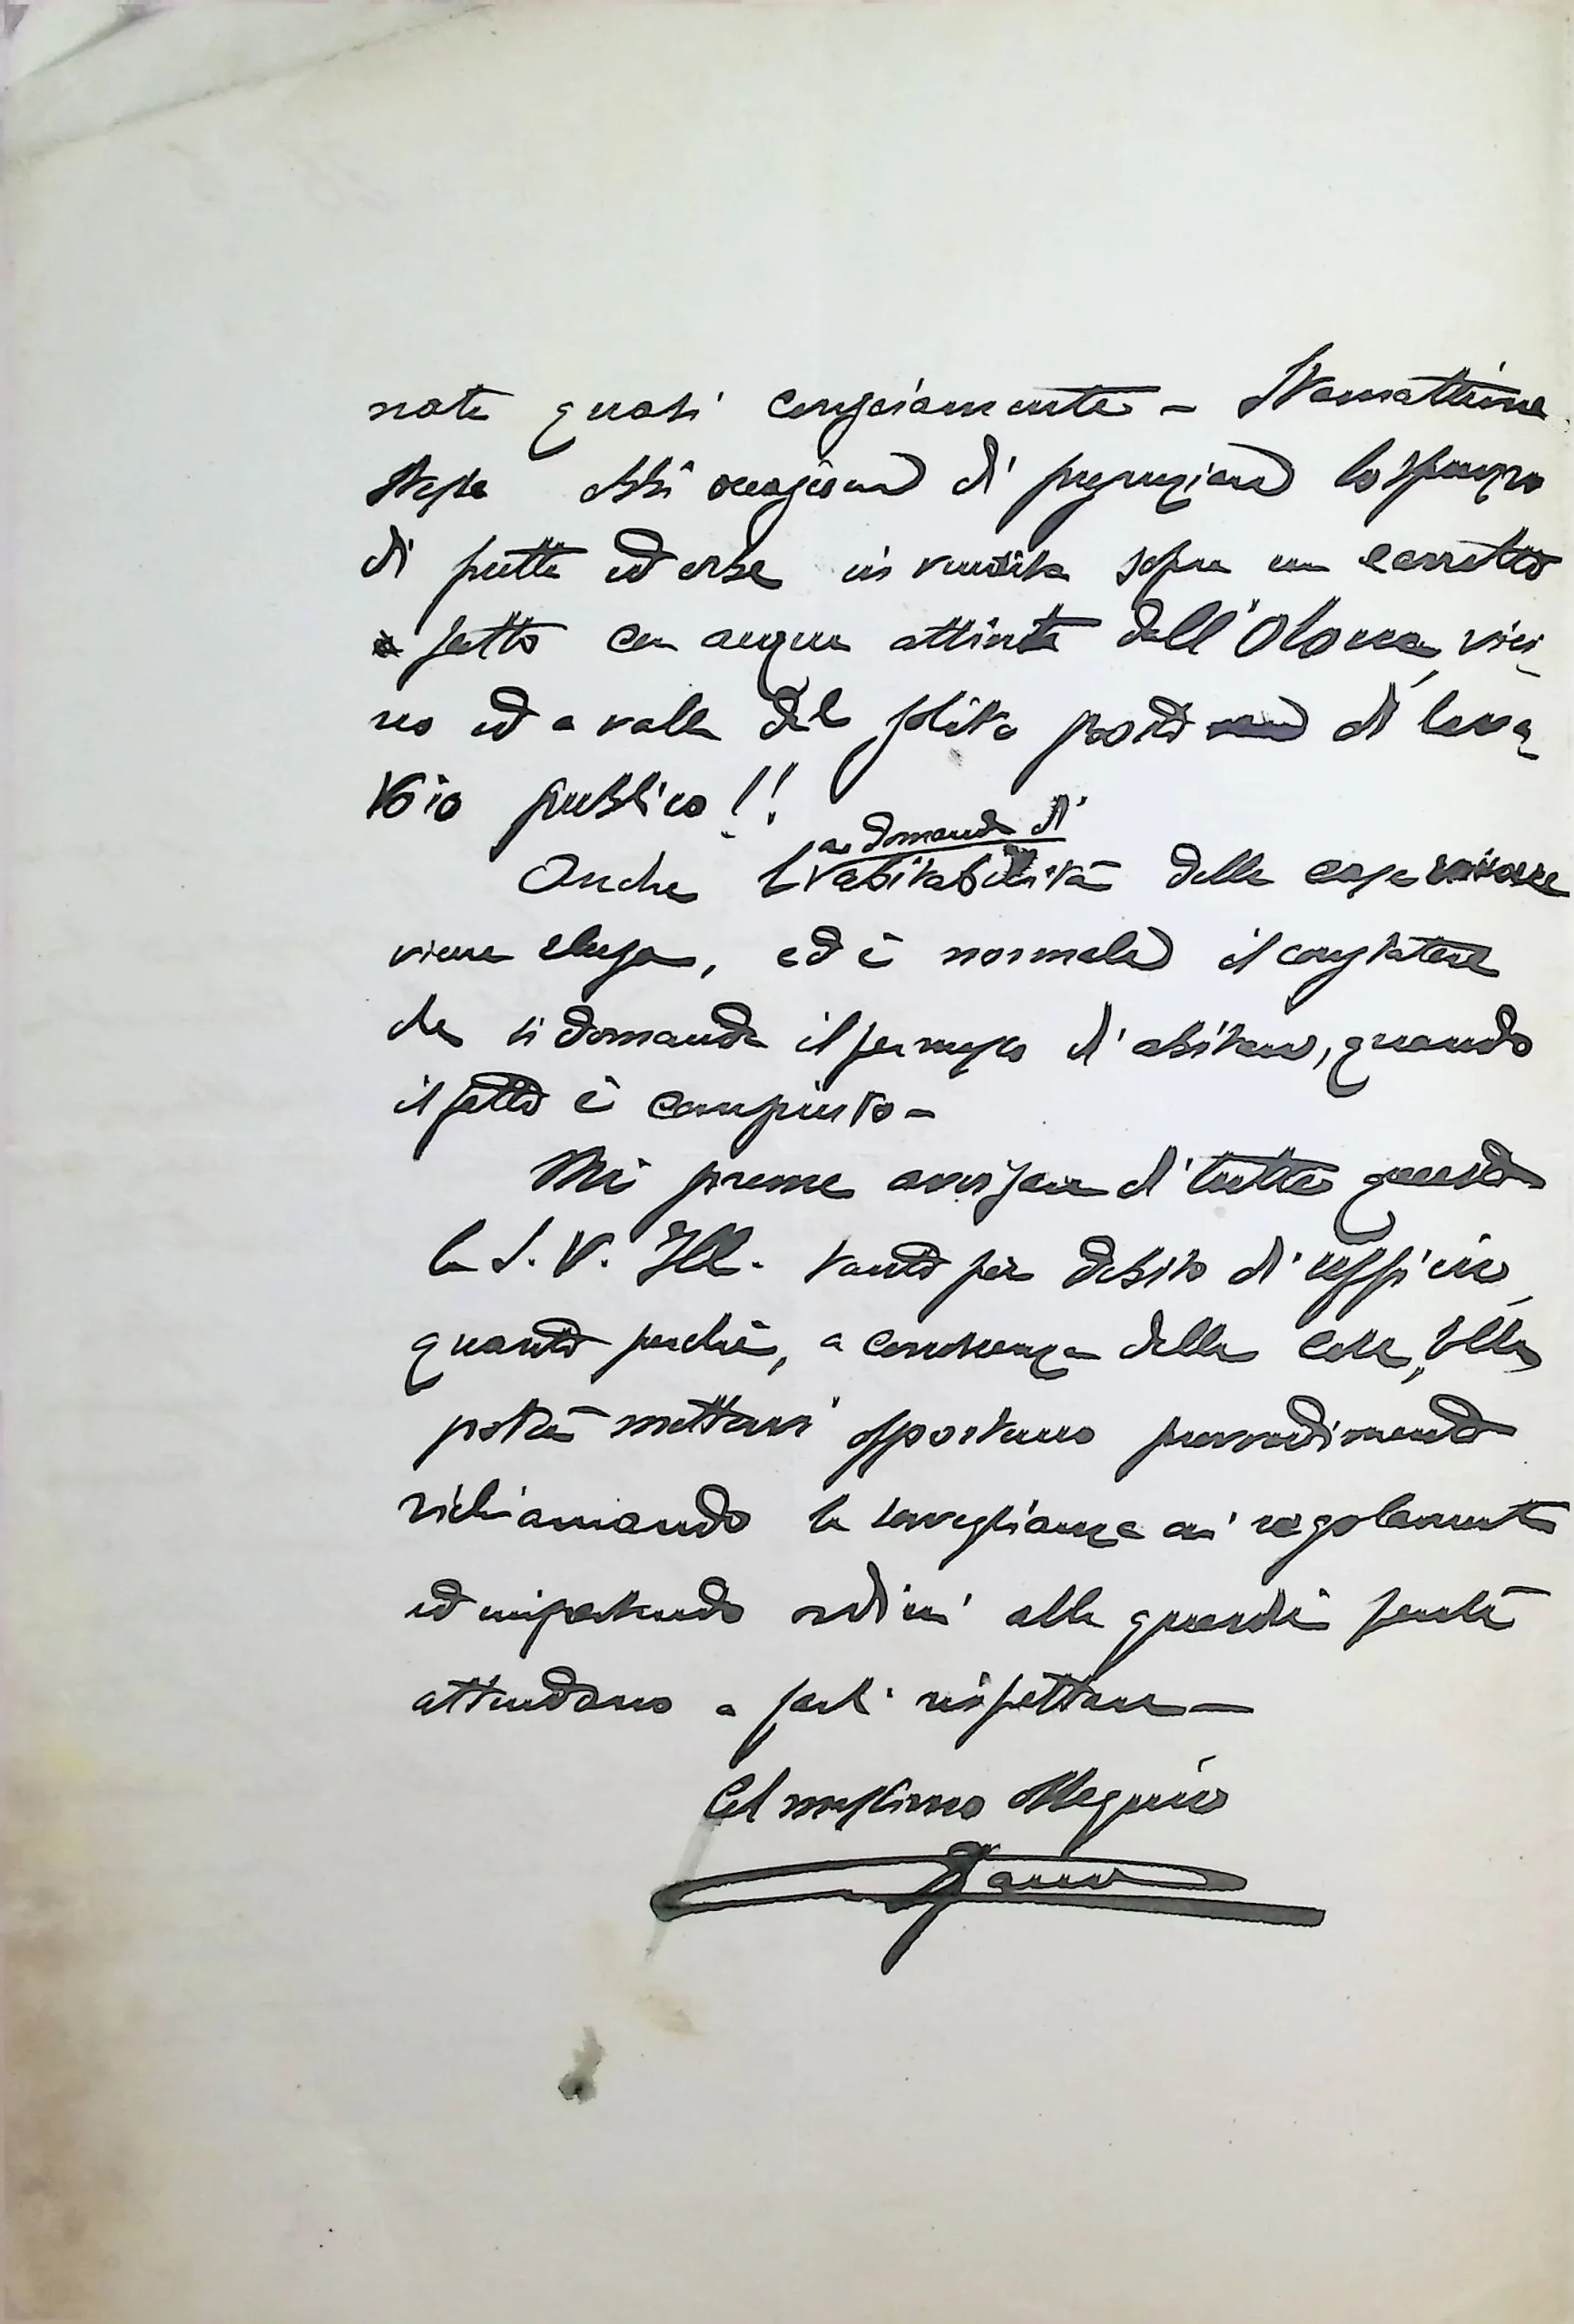 nate quasi consciamente – Stamattina
stessa ebbi occasione di presenziare lo spruzzo
di frutta ed erbe in vendita sopra un carretto
fatto con acqua attinta dall'Olona, vici-
no ed a valle del solito posto di lava-
toio pubblico!!
Anche la domanda di abitabilità delle case nuove
viene elusa, ed è normale il constatare
che si domanda il permesso d'abitare, quando
il fatto è compiuto –
Mi preme avvisare di tutto questo
la S. V. Ill. tanto per debito di ufficio,
quanto perchè, a conoscenza delle cose, Ella
potrà mettervi opportuno provvedimento
richiamando la sorveglianza ai regolamenti
ed impartendo ordini alle guardie perchè
attendano a farli rispettare –
Col massimo ossequio